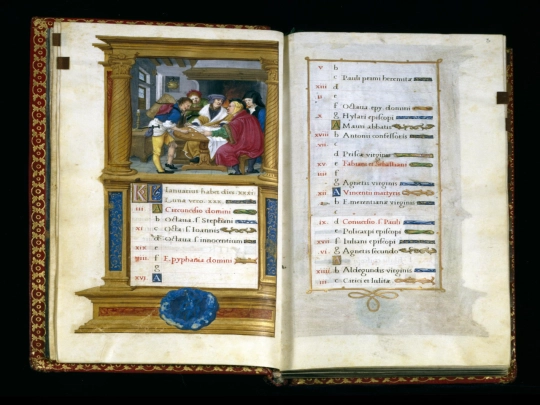 KL Ianuarius habet dies xxxi.
Luna vero. xxx.
iii A Circoncisio domini
b Octaua. s. Stephani
xi c Octa. s. Ioannis
d Octaua. s. innocentium
xix e
viii f Epyphania domini
g
xvi A
v b
c Pauli primi heremitæ
xiii d
ii e
f Octaua epy. domini
x g Hylarii episcopi
A Mauri abbatis
xviii b Antonii confessoris
vii c
d Priscæ virginis
xv e Fabiani et sebastiani
iiii f
g Agnetis virginis
xii A Vincentii martyris
i b Emerentianæ virginis
c
ix d Conuersio s. Pauli
e Policarpi episcopi
xvii f Iuliani episcopi
vi g Agnetis secundo
xiiii b Aldegundis virginis
iii c Cirici et Iulitæ